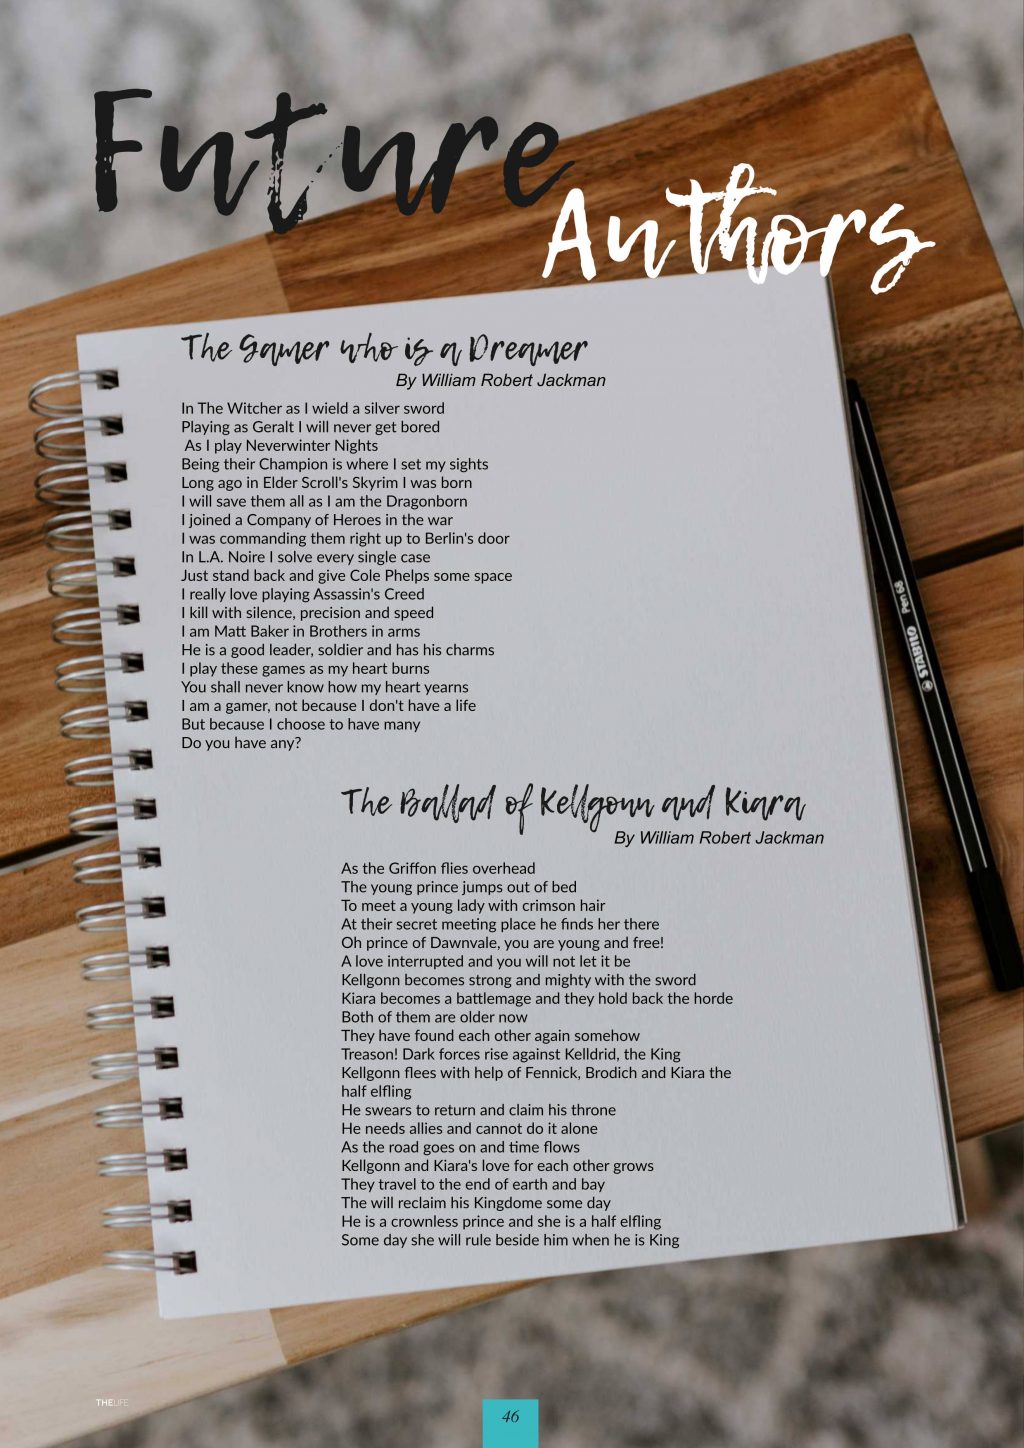 Future
Authors
The Gamer who is a Dreamer
By William Robert Jackman
In The Witcher as I wield a silver sword
Playing as Geralt I will never get bored
As I play Neverwinter Nights
Being their Champion is where I set my sights
Long ago in Elder Scroll's Skyrim I was born
I will save them all as I am the Dragonborn
I joined a Company of Heroes in the war
I was commanding them right up to Berlin's door
In L.A. Noire I solve every single case
Just stand back and give Cole Phelps some space
I really love playing Assassin's Creed
I kill with silence, precision and speed
I am Matt Baker in Brothers in arms
He is a good leader, soldier and has his charms
I play these games as my heart burns
You shall never know how my heart yearns
I am a gamer, not because I don't have a life
But because I choose to have many
Do you have any?
The Ballad of Kellgonn and Kiara
By William Robert Jackman
As the Griffon flies overhead
The young prince jumps out of bed
To meet a young lady with crimson hair
At their secret meeting place he finds her there
Oh prince of Dawnvale, you are young and free!
A love interrupted and you will not let it be
Kellgonn becomes strong and mighty with the sword
Kiara becomes a battlemage and they hold back the horde
Both of them are older now
They have found each other again somehow
Treason! Dark forces rise against Kelldrid, the King
Kellgonn flees with help of Fennick, Brodich and Kiara the
half elfling
He swears to return and claim his throne
He needs allies and cannot do it alone
As the road goes on and time flows
Kellgonn and Kiara's love for each other grows
They travel to the end of earth and bay
The will reclaim his Kingdome some day
He is a crownless prince and she is a half elfling
Some day she will rule beside him when he is King
STABILO Pen 68
THELIFE
46